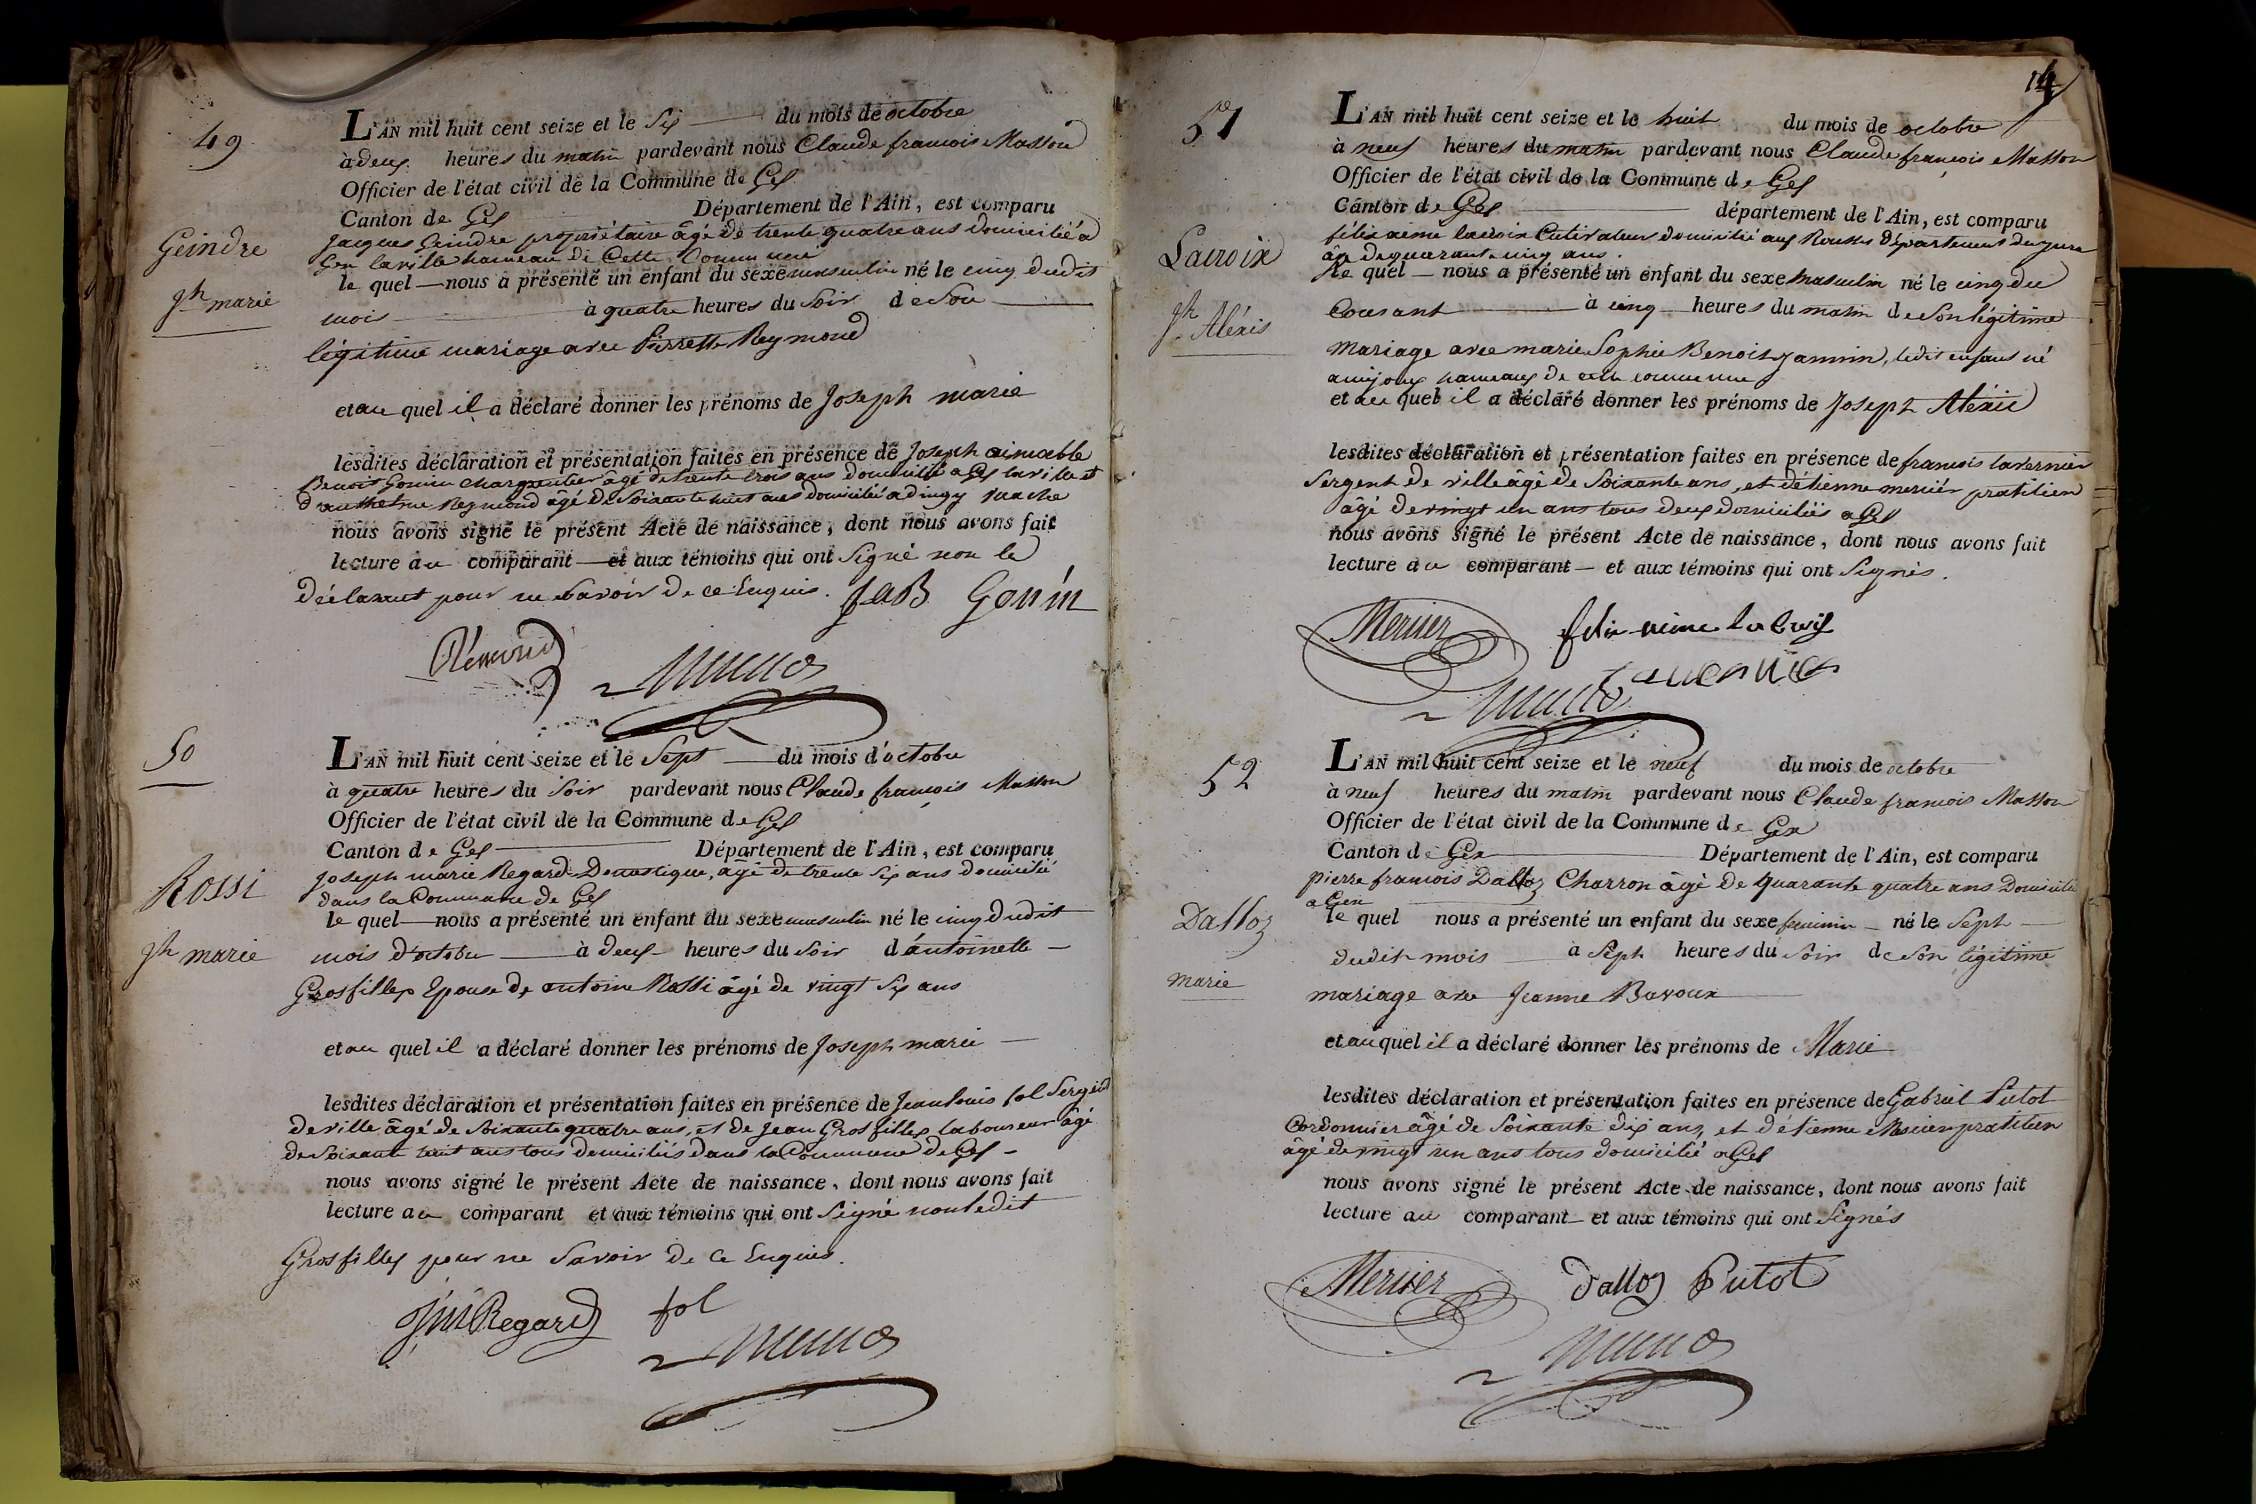 49
L'AN mil huit cent seize et le Six du mois de octobre
à deux heures du matin pardevant nous Claude françois Masson
Officier de l'état civil de la Commune de Gex
Canton de Gex Département de l'Ain, est comparu
Jacques Geindre propriétaire âgé de trente quatre ans domicilié à
Gex laville hameau de Cette Commune
Geindre
le quel nous a présenté un enfant du sexe masculin né le cinq dudit
Jh marie
mois à quatre heures du Soir de Son
légitime mariage avec Pierrette Reymond
et au quel il a déclaré donner les prénoms de Joseph marie
lesdites déclaration et présentation faites en présence de Joseph aimable
Benoit Gonin charpentier âgé de trente trois ans domicilié a Gex laville et
Reymond âgé de Soixante huit ans domicilié a
nous avons signé le présent Acte de naissance, dont nous avons fait
lecture au comparant et aux témoins qui ont Signé non le
déclarant pour ne Savoir De ce Enquis. JAB Gonin
Rémond
50
L'AN mil huit cent seize et le Sept du mois d'octobre
à quatre heures du Soir pardevant nous Claude françois Masson
Officier de l'état civil de la Commune de Gex
Canton de Gex Département de l'Ain, est comparu
Joseph marie Regard Domestique, âgé de trente Six ans domicilié
dans la Commune de Gex
Rossi
le quel nous a présenté un enfant du sexe masculin né le cinq dudit
Jh marie
mois d'octobre à deux heures du Soir d'antoinette
Grosfillex Epouse de antoine Rossi âgé de vingt Six ans
et au quel il a déclaré donner les prénoms de Joseph marie
lesdites déclaration et présentation faites en présence de Jean louis fol Sergent
de ville âgé de Soixante quatre ans, et de Jean Grosfillex laboureur âgé
de Soixante huit ans tous domiciliés dans la Commune de Gex
nous avons signé le présent Acte de naissance, dont nous avons fait
lecture au comparant et aux témoins qui ont Signé non ledit
Grosfillex pour ne Savoir De Ce Enquis.
JM Regard fol
14
51
L'AN mil huit cent seize et le huit du mois de octobre
à neuf heures du matin pardevant nous Claude françois Masson
Officier de l'état civil de la Commune de Gex
Canton de Gex département de l'Ain, est comparu
félix aimé lacroix Cultivateur domicilié aux Rousses département du jura
âgé de quarante cinq ans.
Lacroix
le quel nous a présenté un enfant du sexe masculin né le cinq du
Jh Aléxis
Courant à cinq heures du matin de Son légitime
mariage avec marie Sophie Benoit jannin, ledit enfant né
a mijoux hameaux de cette commune
et au quel il a déclaré donner les prénoms de Joseph Aléxis
lesdites déclaration et présentation faites en présence de françois lavernier
Sergent de ville âgé de Soixante ans, et d'étienne mercier pratitien
âgé de vingt un ans tous deux domiciliés a Gex
nous avons signé le présent Acte de naissance, dont nous avons fait
lecture au comparant et aux témoins qui ont Signés.
Mercier felix aime lacroix
52
L'AN mil huit cent seize et le neuf du mois de octobre
à neuf heures du matin pardevant nous Claude françois Masson
Officier de l'état civil de la Commune de Gex
Canton de Gex Département de l'Ain, est comparu
pierre françois Dalloz Charron âgé de quarante quatre ans Domicilié
a Gex
Dalloz
le quel nous a présenté un enfant du sexe feminin né le Sept
marie
dudit mois à Sept heures du Soir de Son légitime
mariage avec Jeanne Bavoux
et auquel il a déclaré donner les prénoms de Marie
lesdites déclaration et présentation faites en présence de Gabriel Putot
Cordonnier âgé de Soixante dix ans, et d'étienne Mercier pratitien
âgé de vingt un ans tous domicilié a Gex
nous avons signé le présent Acte de naissance, dont nous avons fait
lecture au comparant et aux témoins qui ont Signés
Mercier Dalloz Putot